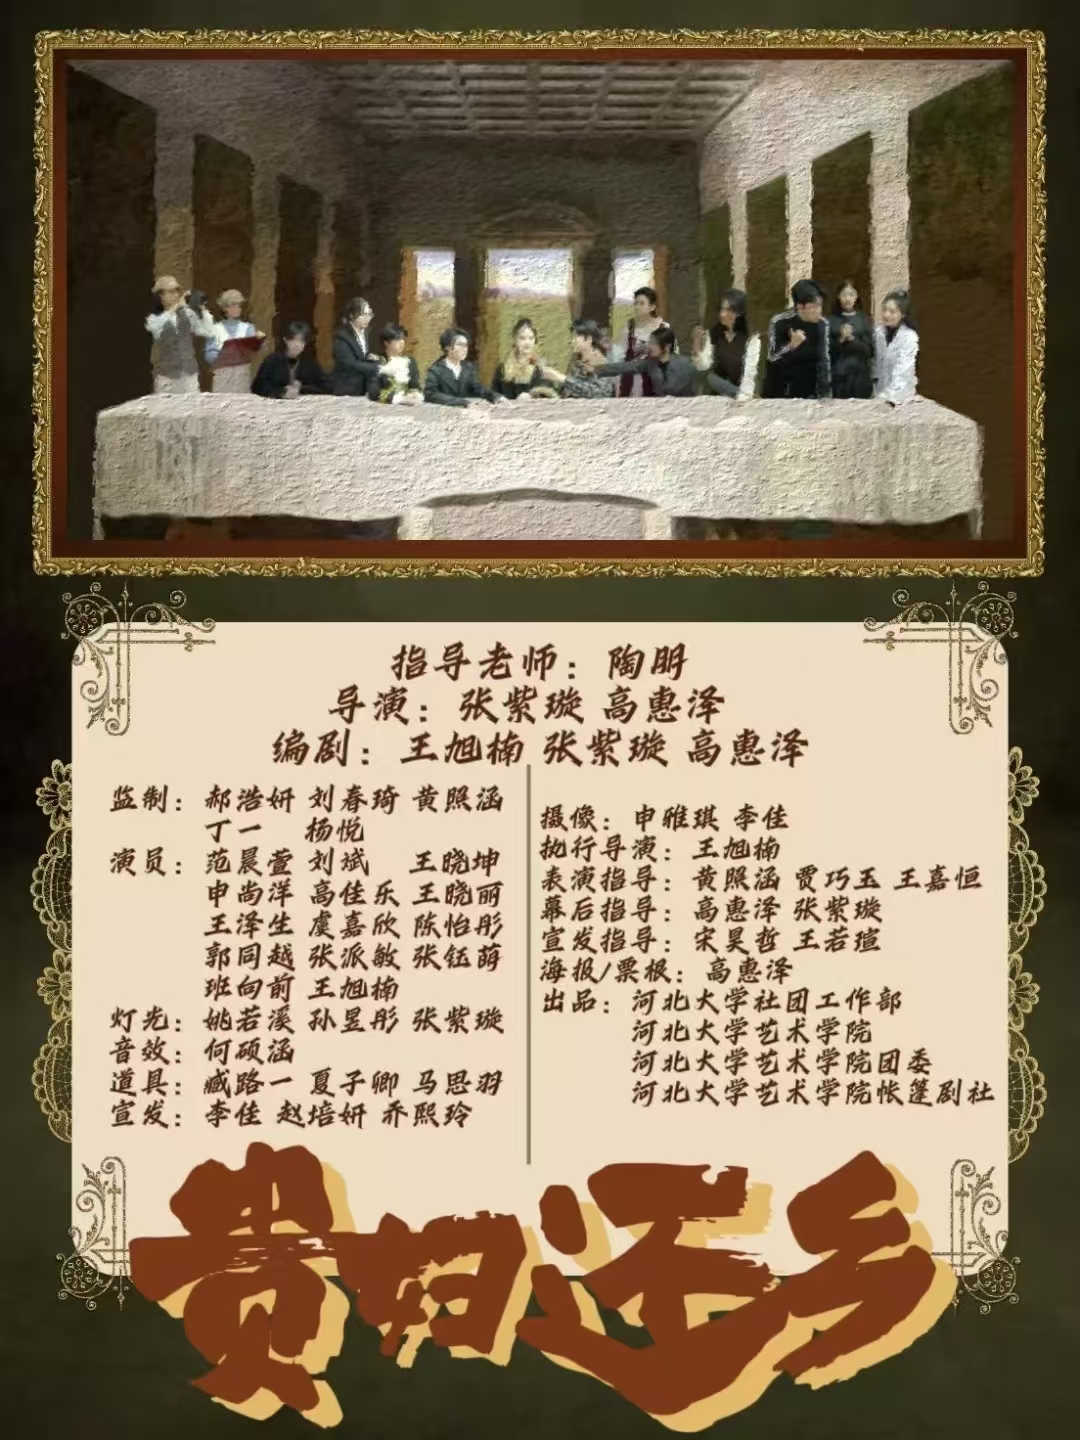 指导老师：陶朋
导演：张紫璇 高惠泽
编剧：王旭楠 张紫璇 高惠泽
监制：郝浩妍 刘春琦 黄照涵
丁一 杨悦
演员：范晨萱 刘斌 王晓坤
申尚洋 高佳乐 王晓丽
王泽生 虞嘉欣 陈怡彤
郭同越 张派敏 张钰荫
班向前 王旭楠
灯光：姚若溪 孙昱彤 张紫璇
音效：何硕涵
道具：臧路一 夏子卿 马思羽
宣发：李佳 赵培妍 乔熙玲
摄像：申雅琪 李佳
执行导演：王旭楠
表演指导：黄照涵 贾巧玉 王嘉恒
幕后指导：高惠泽 张紫璇
宣发指导：宋昊哲 王若瑄
海报/票根：高惠泽
出品：河北大学社团工作部
河北大学艺术学院
河北大学艺术学院团委
河北大学艺术学院帐篷剧社
贵妇还乡